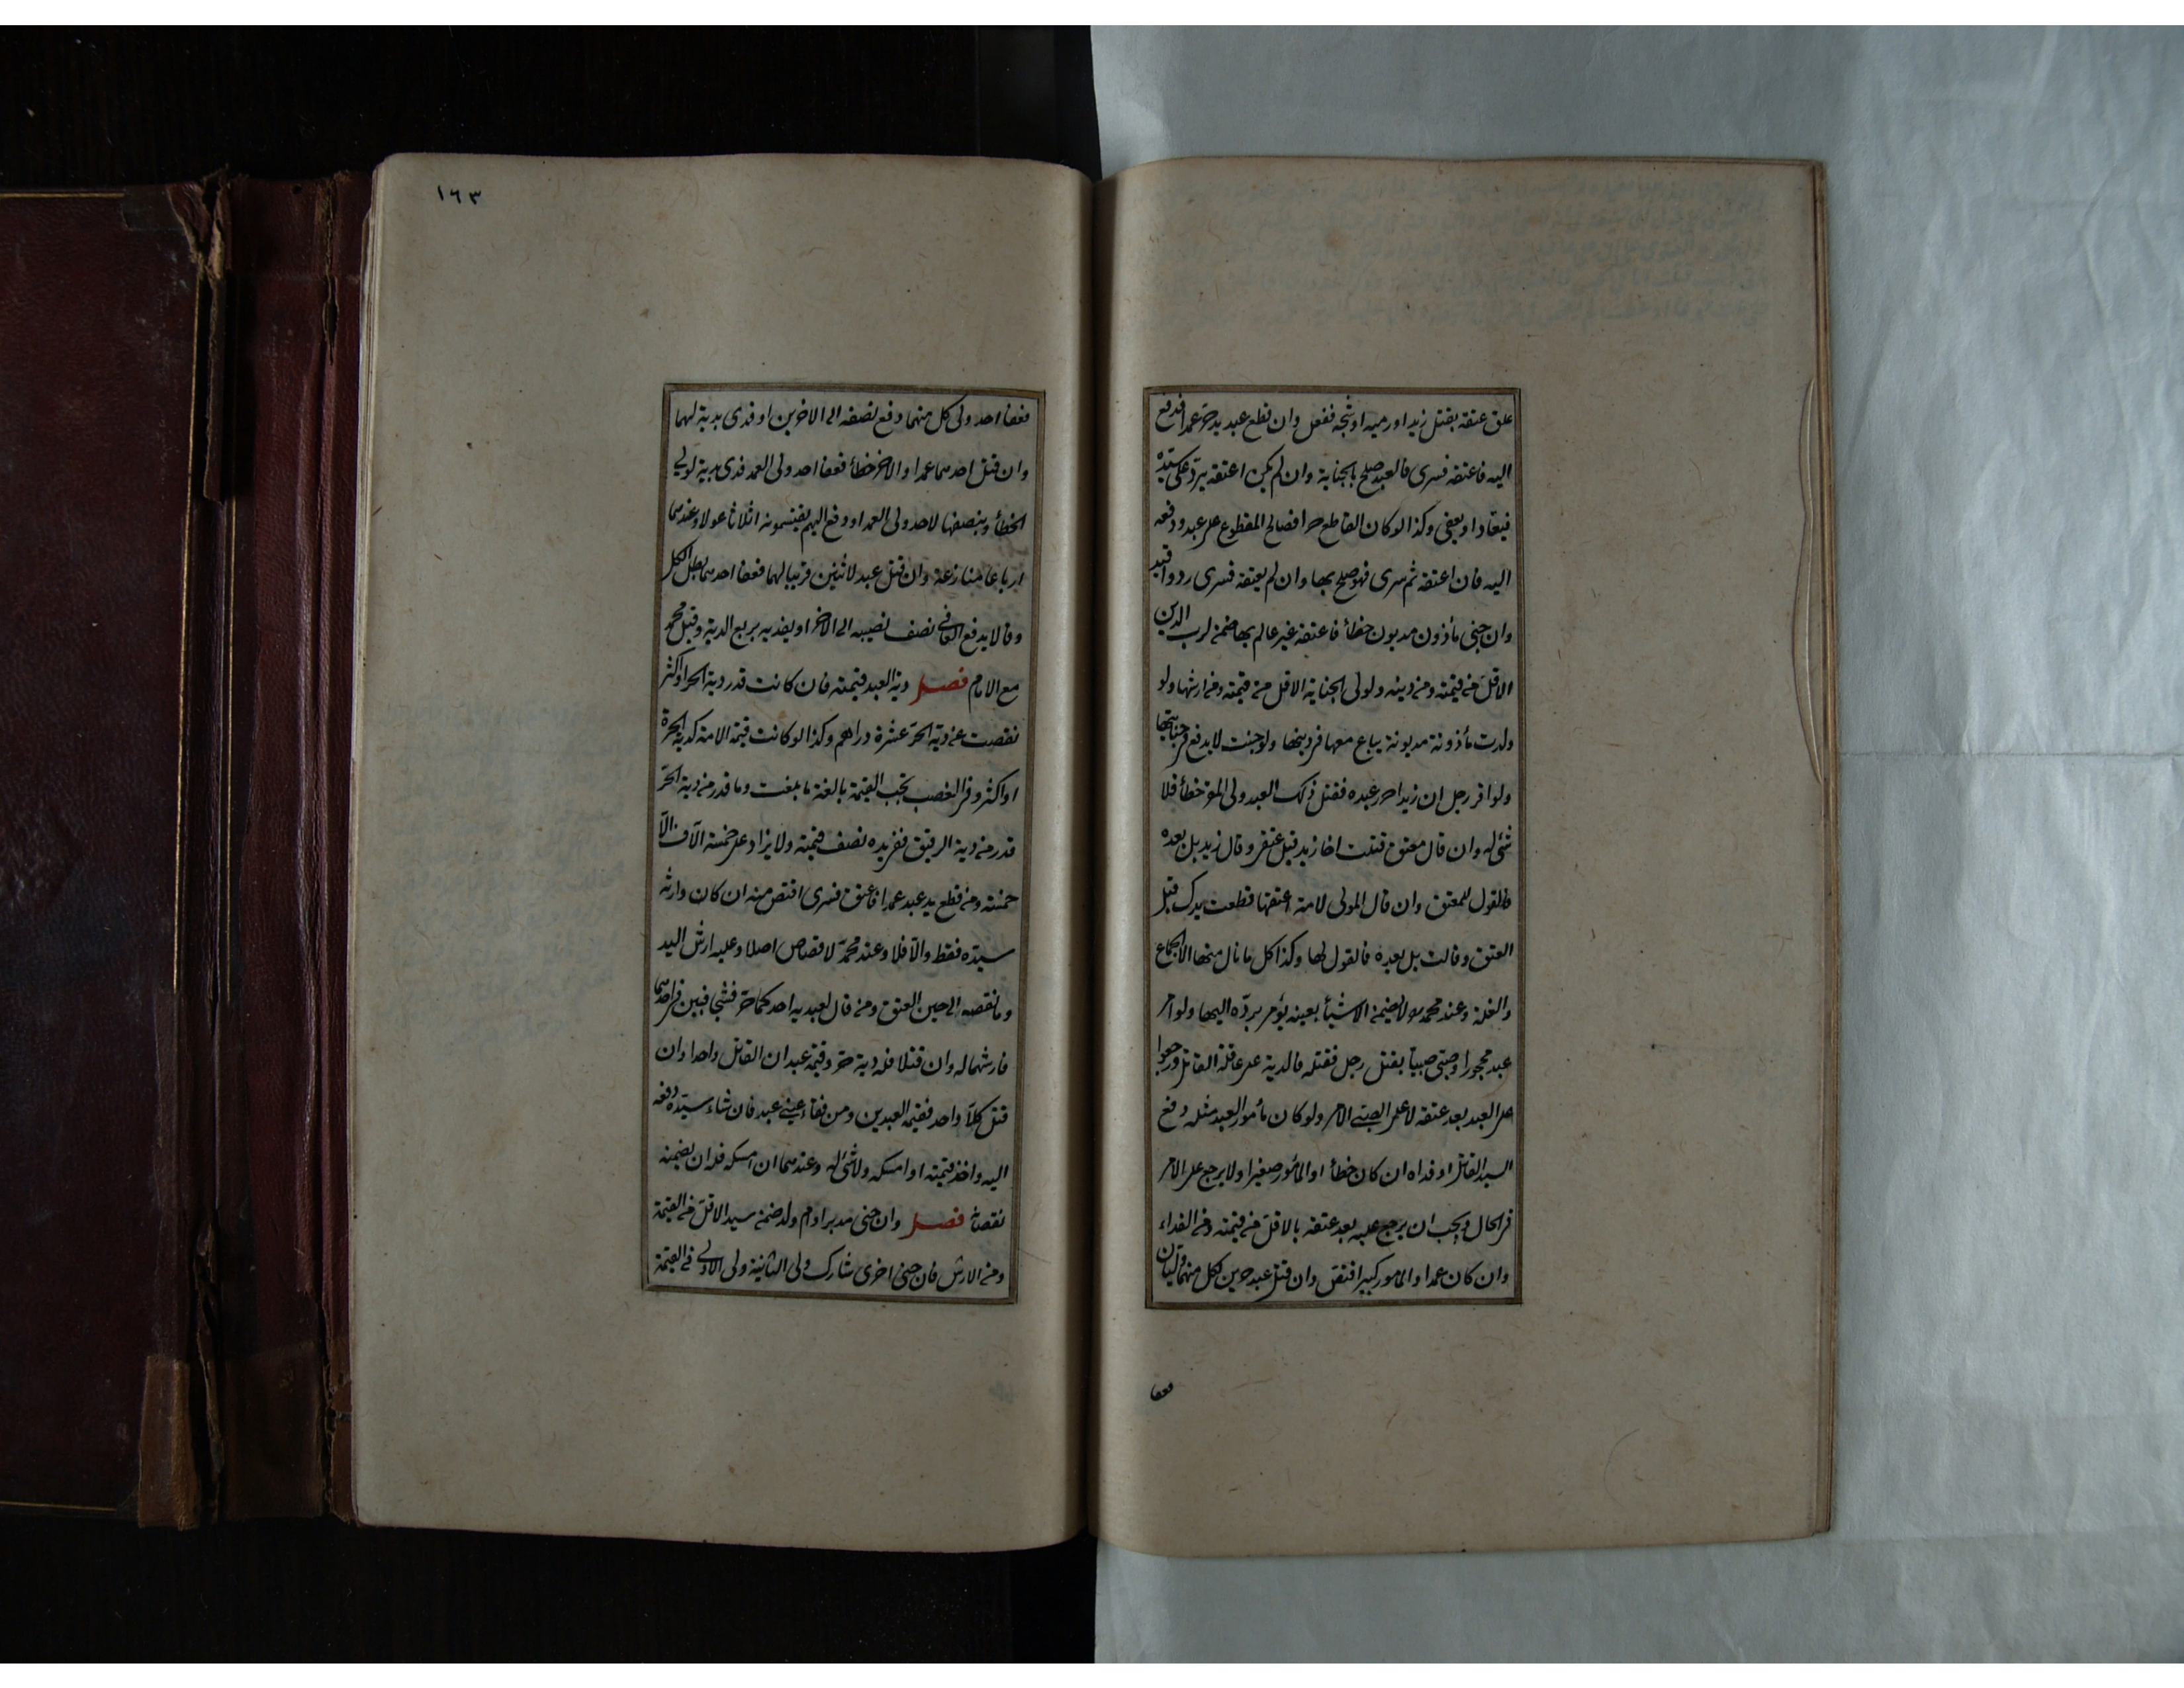 علق عتقه بقتل زيد او رميه او شجه ففعل وان قطع عبد يد حر عمدا فدفع
اليه فاعتقه فسرى فالعبد صلح بالجناية وان لم يكن اعتقه يرد على سيده
فيقاد او يعفى وكذا لو كان القاطع حرا فصالح المقطوع على عبد ودفعه
اليه فان اعتقه ثم سرى فهو صلح بها وان لم يعتقه فسرى رد واقيد
وان جنى مأذون مديون خطأ فاعتقه غير عالم بها ضمن لرب الدين
الاقل من قيمته ومن دينه ولولى الجناية الاقل من قيمته ومن ارشها ولو
ولدت مأذونة مديونة يباع معها فى دينها ولو جنت لا يدفع فى جنايتها
ولو اقر رجل ان زيدا حرر عبده فقتل ذلك العبد ولى المقر خطأ فلا
شئ له وان قال معتق قتلت اخا زيد قبل عتقى وقال زيد بل بعده
فالقول للمعتق وان قال المولى لامة اعتقها قطعت يدك قبل
العتق وقالت بل بعده فالقول لها وكذا كل ما نال منها الا الجماع
والغلة وعند محمد مولا يضمن الا شيئا بعينه يؤمر برده اليها ولو امر
عبد محجور او صبى صبيا بقتل رجل فقتله فالدية على عاقلة القاتل ورجعوا
على العبد بعد عتقه لا على الصبى الامر ولو كان مأمور العبد مثله دفع
السيد القاتل او فداه ان كان خطأ او المأمور صغيرا ولا يرجع على الامر
فى الحال ويجب ان يرجع عليه بعد عتقه بالاقل من قيمته ومن الفداء
وان كان عمدا والمامور كبيرا اقتص وان قتل عبد حرين لكل منهما وليان
فعفا
١٦٣
فعفا احد ولى كل منهما دفع نصفه الى الاخرين او فدى بدية لهما
وان قتل احدهما عمدا والاخر خطأ فعفا احد ولى العمد فدى بدية لولي
الخطأ وبنصفها لاحد ولى العمد او دفع اليهم يقتسمونه اثلاثا عولا وعندهما
ارباعا منازعة وان قتل عبد لاثنين قريبا لهما فعفا احدهما بطل الكل
وقالا يدفع العافى نصف نصيبه الى الاخر او يفديه بربع الدية وقيل محمد
مع الامام فصل دية العبد قيمته فان كانت قدر دية الحر او اكثر
نقصت عن دية الحر عشرة دراهم وكذا لو كانت قيمة الامة كدية الحرة
او اكثر وفى الغصب تجب القيمة بالغة ما بلغت وما قدر من دية الحر
قدر من دية الرقيق ففى يده نصف قيمته ولا يزاد على خمسة الاف الا
خمسة ومن قطع يد عبد عمدا فاعتق فسرى اقتص منه ان كان وارثه
سيده فقط والا فلا وعند محمد لا قصاص اصلا وعليه ارش اليد
وما نقصه الى حين العتق ومن قال لعبديه احدكما حر فشجا فبين فى احدهما
فارشهما له وان قتلا فله دية حر وقيمة عبد ان القاتل واحدا وان
قتل كلا واحد فقيمة العبدين ومن فقأ عينى عبد فان شاء سيده دفعه
اليه واخذ قيمته او امسكه ولا شئ له وعندهما ان امسكه فله ان يضمنه
نقصانه فصل وان جنى مدبر او ام ولد ضمن سيد الاقل من القيمة
ومن الارش فان جنى اخرى شارك ولى الثانية ولى الاولى فى القيمة